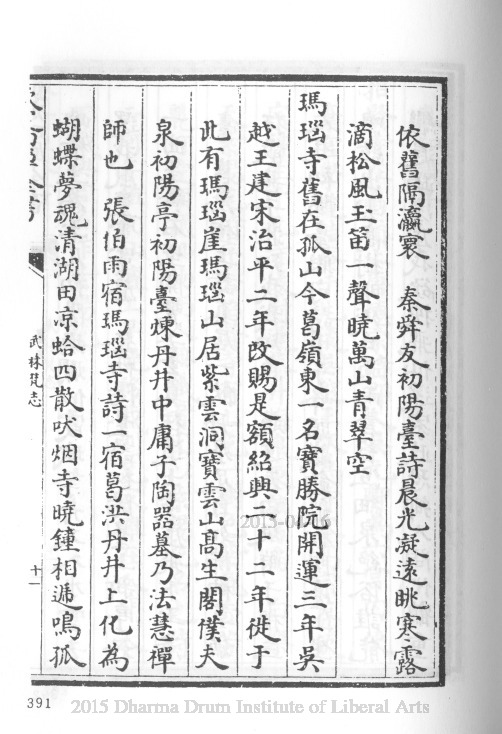 依舊隔瀛寰　秦舜友初陽臺詩晨光凝遠眺寒露
滴松風玉笛一聲曉萬山青翠空
瑪瑙寺舊在孤山今葛嶺東一名寶勝院開運三年吳
越王建宋治平二年改賜是額紹興二十二年徙于
此有瑪瑙崖瑪瑙山居紫雲洞寶雲山高生閣僕夫
泉初陽亭初陽臺煉丹井中庸子陶器墓乃法慧禪
師也　張伯雨宿瑪瑙寺詩一宿葛洪丹井上化為
蝴蝶夢魂清湖田凉蛤四散吠烟寺曉鐘相遞鳴孤
武林梵志
十一
391
2015-04-16
2015 Dharma Drum Institute of Liberal Arts